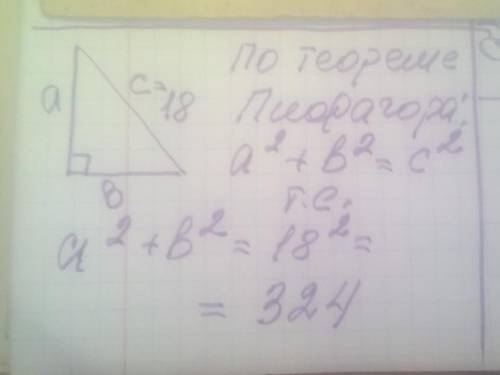 a
c=18
в
По теореме
Пиорагора:
a² + в² = c²
т.е.
a² + в² = 18² =
= 324